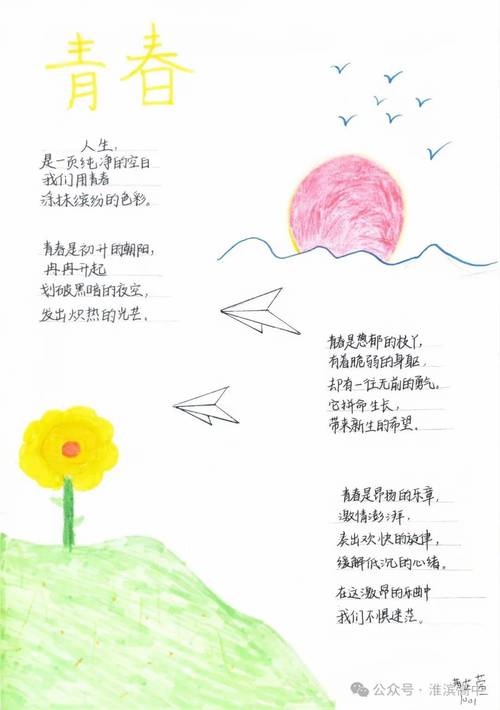 青春
人生，
是一页纯净的空白
我们用青春
涂抹缤纷的色彩。
青春是初升的朝阳，
冉冉升起
划破黑暗的夜空，
发出炽热的光芒。
青春是葱郁的枝丫，
有着脆弱的身躯，
却有一往无前的勇气。
它拼命生长，
带来新生的希望。
青春是昂扬的乐章，
激情澎湃，
奏出欢快的旋律，
缓解低沉的心绪。
在这激昂的乐曲中
我们不惧迷茫。
公众号·淮滨高中